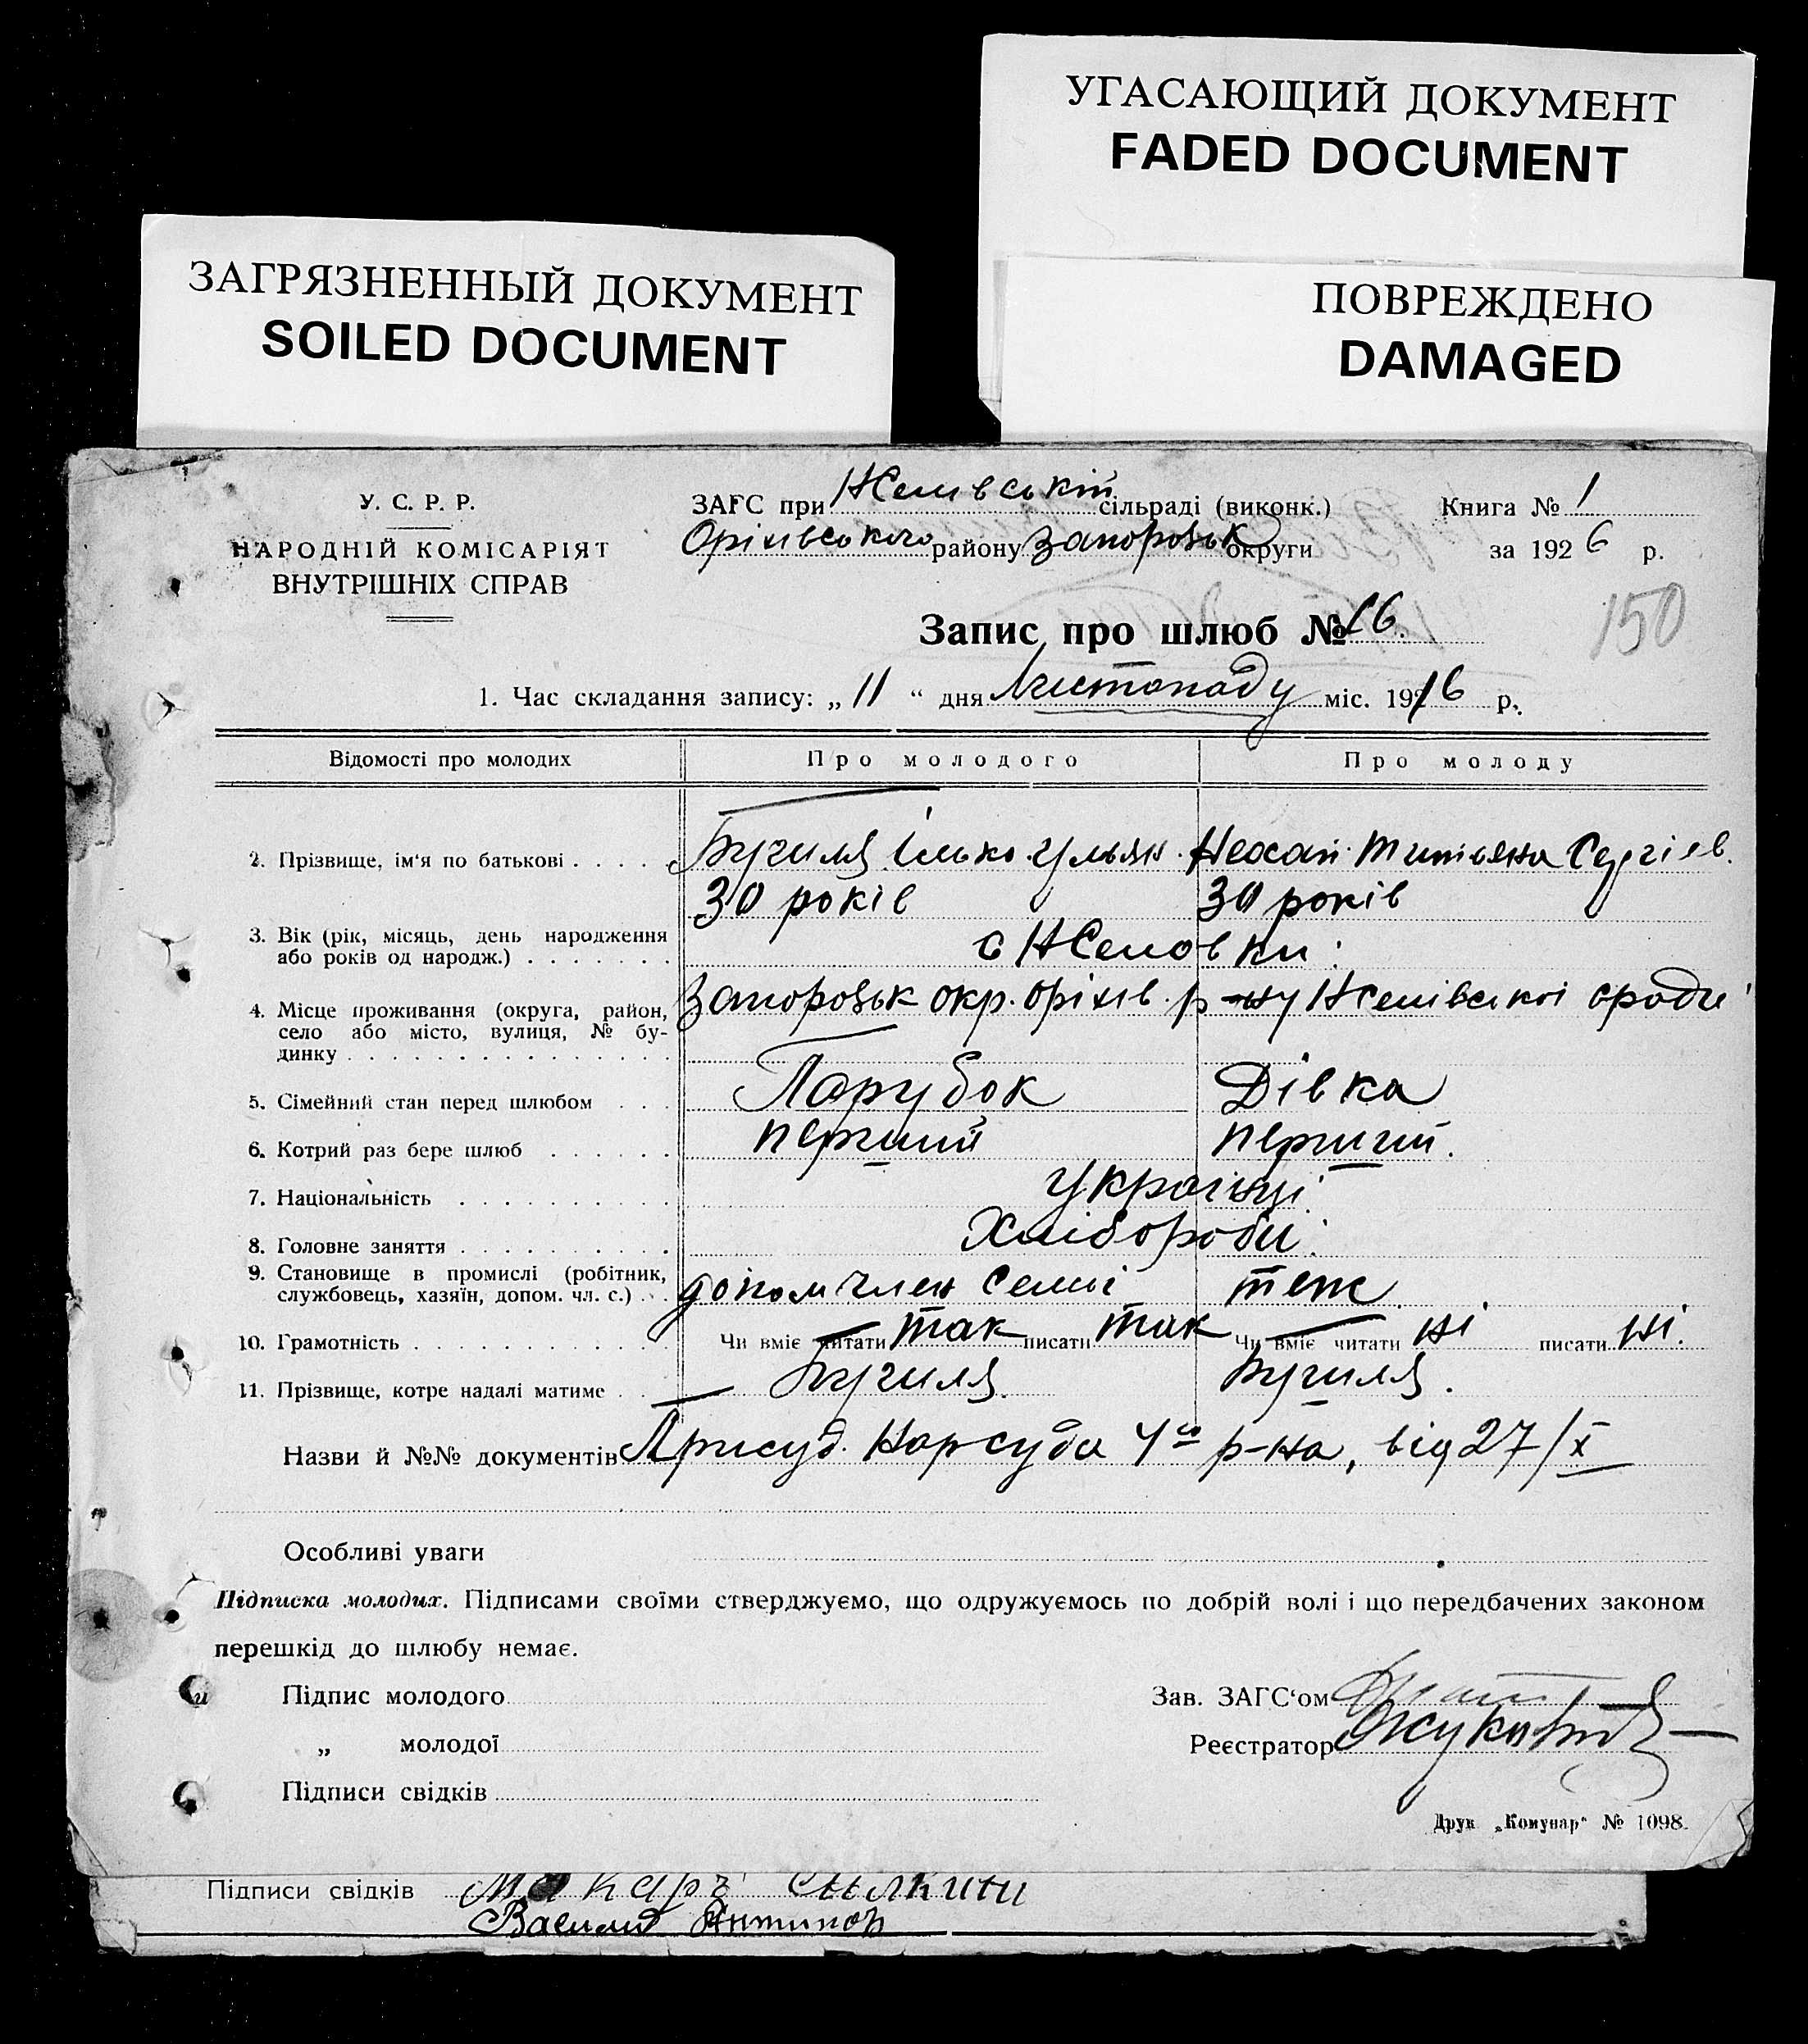 УГАСАЮЩИЙ ДОКУМЕНТ
FADED DOCUMENT
ЗАГРЯЗНЕННЫЙ ДОКУМЕНТ
SOILED DOCUMENT
ПОВРЕЖДЕНО
DAMAGED
У. С. Р. Р.
НАРОДНІЙ КОМІСАРІЯТ
ВНУТРІШНІХ СПРАВ
ЗАГС при сільраді (виконк.)
Оріхівського району Запорозьк округи
Книга № 1
за 1926 р.
Запис про шлюб № 16.
150
1. Час складання запису: „ 11 “ дня Листопаду міс. 1926 р.
Відомості про молодих Про молодого Про молоду
2. Прізвище, ім'я по батькові . . . . Бугиля Ілько Улян. Нехай Титьяна Сергіев.
30 років 30 років
3. Вік (рік, місяць, день народження
або років од народж.) . . . . . . .
4. Місце проживання (округа, район, Запорозьк окр. Оріхів. р-ну
село або місто, вулиця, № бу-
динку . . . . . . . . . . . . . . .
5. Сімейний стан перед шлюбом . . . Парубок Дівка
6. Котрий раз бере шлюб . . . . . . перший перший.
7. Національність . . . . . . . . . Українці
8. Головне заняття . . . . . . . . . Хлібороби
9. Становище в промислі (робітник,
службовець, хазяїн, допом. чл. с.) . . допом член семьі теж
10. Грамотність . . . . . . . . . . . Чи вміє читати так писати так Чи вміє читати ні писати ні.
11. Прізвище, котре надалі матиме . . Бугиля. Бугиля.
Назви й №№ документів Присуд. Нарсуда 4го р-на, від 27/X
Особливі уваги
Підписка молодих. Підписами своїми стверджуємо, що одружуємось по добрій волі і що передбачених законом
перешкід до шлюбу немає.
Підпис молодого
„ молодої
Підписи свідків
Зав. ЗАГС'ом
Реєстратор
Друк „Комунар“ № 1098.
Підписи свідків Макаръ
Василий Антипов